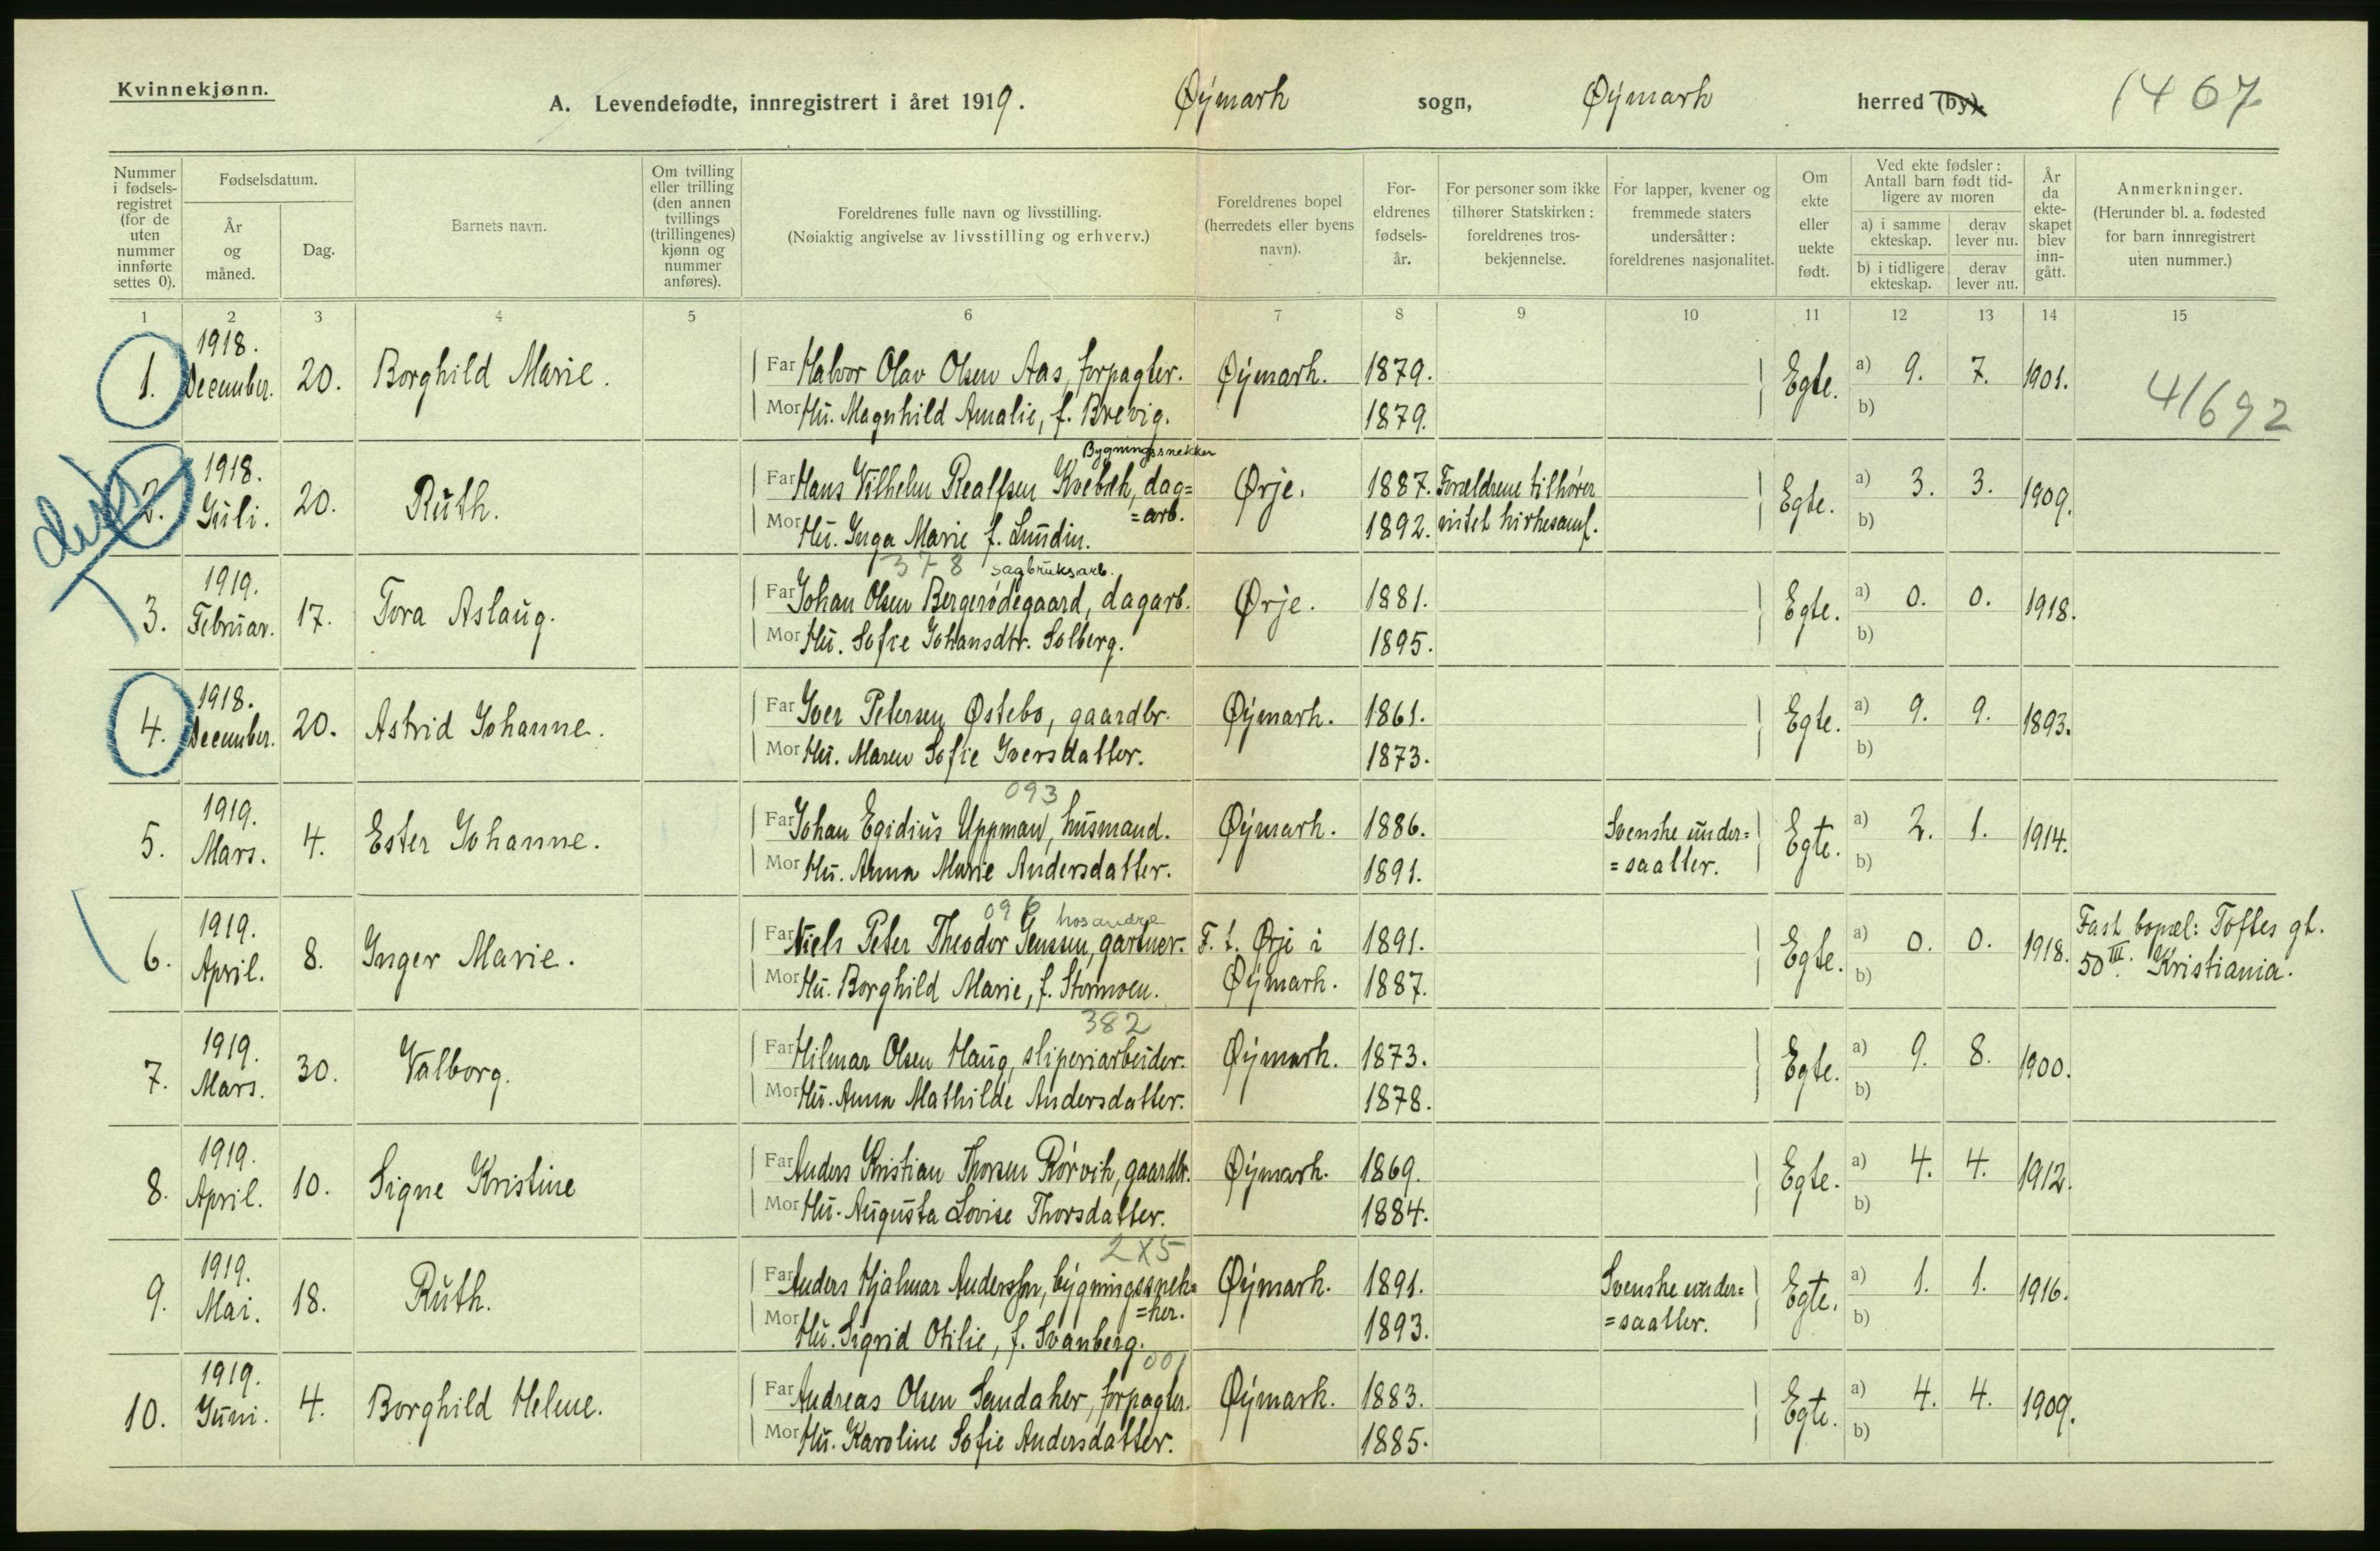 Kvinnekjønn.
A. Levendefødte, innregistrert i året 1919. Øymark sogn, Øymark herred (by). 1467
Nummer i fødsels-registret (for de uten nummer innførte settes 0).
Fødselsdatum.
År og måned.
Dag.
Barnets navn.
Om tvilling eller trilling (den annen tvillings (trillingenes) kjønn og nummer anføres).
Foreldrenes fulle navn og livsstilling.
(Nøiaktig angivelse av livsstilling og erhverv.)
Foreldrenes bopel (herredets eller byens navn).
For-eldrenes fødsels-år.
For personer som ikke tilhører Statskirken: foreldrenes tros-bekjennelse.
For lapper, kvener og fremmede staters undersåtter: foreldrenes nasjonalitet.
Om ekte eller uekte født.
Ved ekte fødsler: Antall barn født tid-ligere av moren
a) i samme ekteskap.
derav lever nu.
b) i tidligere ekteskap.
derav lever nu.
År da ekte-skapet blev inn-gått.
Anmerkninger.
(Herunder bl. a. fødested for barn innregistrert uten nummer.)
1 2 3 4 5 6 7 8 9 10 11 12 13 14 15
1. 1918. December. 20. Borghild Marie. Far Halvor Olav Olsen Aas, forpagter. Øymark. 1879. Egte. a) 9. 7. 1901. 41692
Mor Hu. Magnhild Amalie, f. Brevig. 1879. b)
Bygningssnekker
2. 1918. Juli. 20. Ruth. Far Hans Vilhelm Realfsen Kvebæk, dag= Ørje. 1887. Forældrene tilhører Egte. a) 3. 3. 1909.
=arb.
Mor Hu. Inga Marie f. Lundin. 1892. intet kirkesamf. b)
378 sagbruksarb.
3. 1919. Februar. 17. Tora Aslaug. Far Johan Olsen Bergerødegaard, dagarb. Ørje. 1881. Egte. a) 0. 0. 1918.
Mor Hu. Sofie Johansdtr. Solberg. 1895. b)
4. 1918. December. 20. Astrid Johanne. Far Iver Petersen Østebo, gaardbr. Øymark. 1861. Egte. a) 9. 9. 1893.
Mor Hu. Maren Sofie Iversdatter. 1873. b)
093
5. 1919. Mars. 4. Ester Johanne. Far Johan Egidius Uppman, husmand. Øymark. 1886. Svenske under= Egte. a) 2. 1. 1914.
Mor Hu. Anna Marie Andersdatter. 1891. =saatter. b)
096 hos andre
6. 1919. April. 8. Inger Marie. Far Niels Peter Theodor Jensen, gartner. F. t. Ørje i 1891. Egte. a) 0. 0. 1918. Fast bopæl: Toftes gt.
Mor Hu. Borghild Marie, f. Stormoen. Øymark. 1887. b) 50 III. Kristiania.
382
7. 1919. Mars. 30. Valborg. Far Hilmar Olsen Haug, sliperiarbeider. Øymark. 1873. Egte. a) 9. 8. 1900.
Mor Hu. Anna Mathilde Andersdatter. 1878. b)
8. 1919. April. 10. Signe Kristine Far Anders Kristian Thorsen Rørvik, gaardbr. Øymark. 1869. Egte. a) 4. 4. 1912.
Mor Hu. Augusta Lovise Thorsdatter. 1884. b)
2x5
9. 1919. Mai. 18. Ruth. Far Anders Hjalmar Anderssen, bygningssnek= Øymark. 1891. Svenske under= Egte. a) 1. 1. 1916.
=ker.
Mor Hu. Sigrid Otilie, f. Svanberg. 1893. =saatter. b)
001
10. 1919. Juni. 4. Borghild Helene. Far Andreas Olsen Sandaker, forpagter. Øymark. 1883. Egte. a) 4. 4. 1909.
Mor Hu. Karoline Sofie Andersdatter. 1885. b)